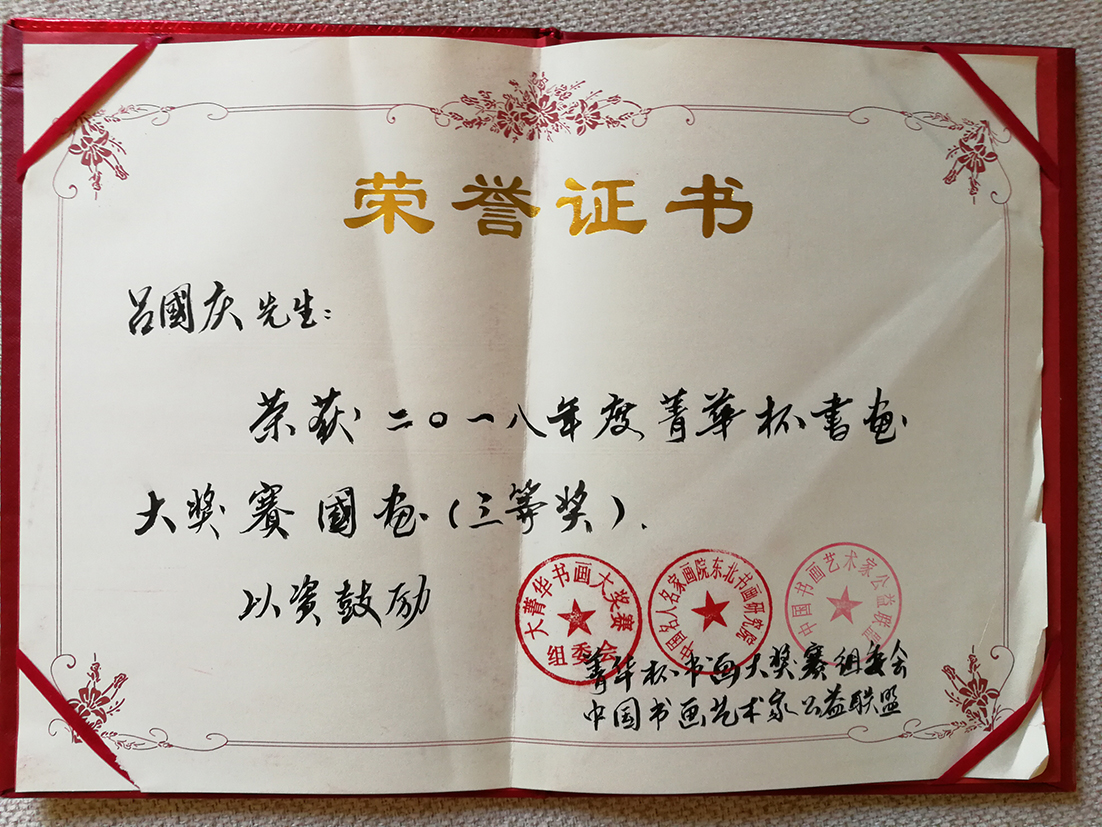 荣誉证书
吕國庆先生：
荣获二〇一八年度菁華杯書画
大奖賽國画（三等奖）.
以资鼓励
大菁华书画大奖赛
组委会
中国名人名家画院东北书画研究院
中国书画艺术家公益联盟
菁华杯书画大奖赛组委会
中国书画艺术家公益联盟